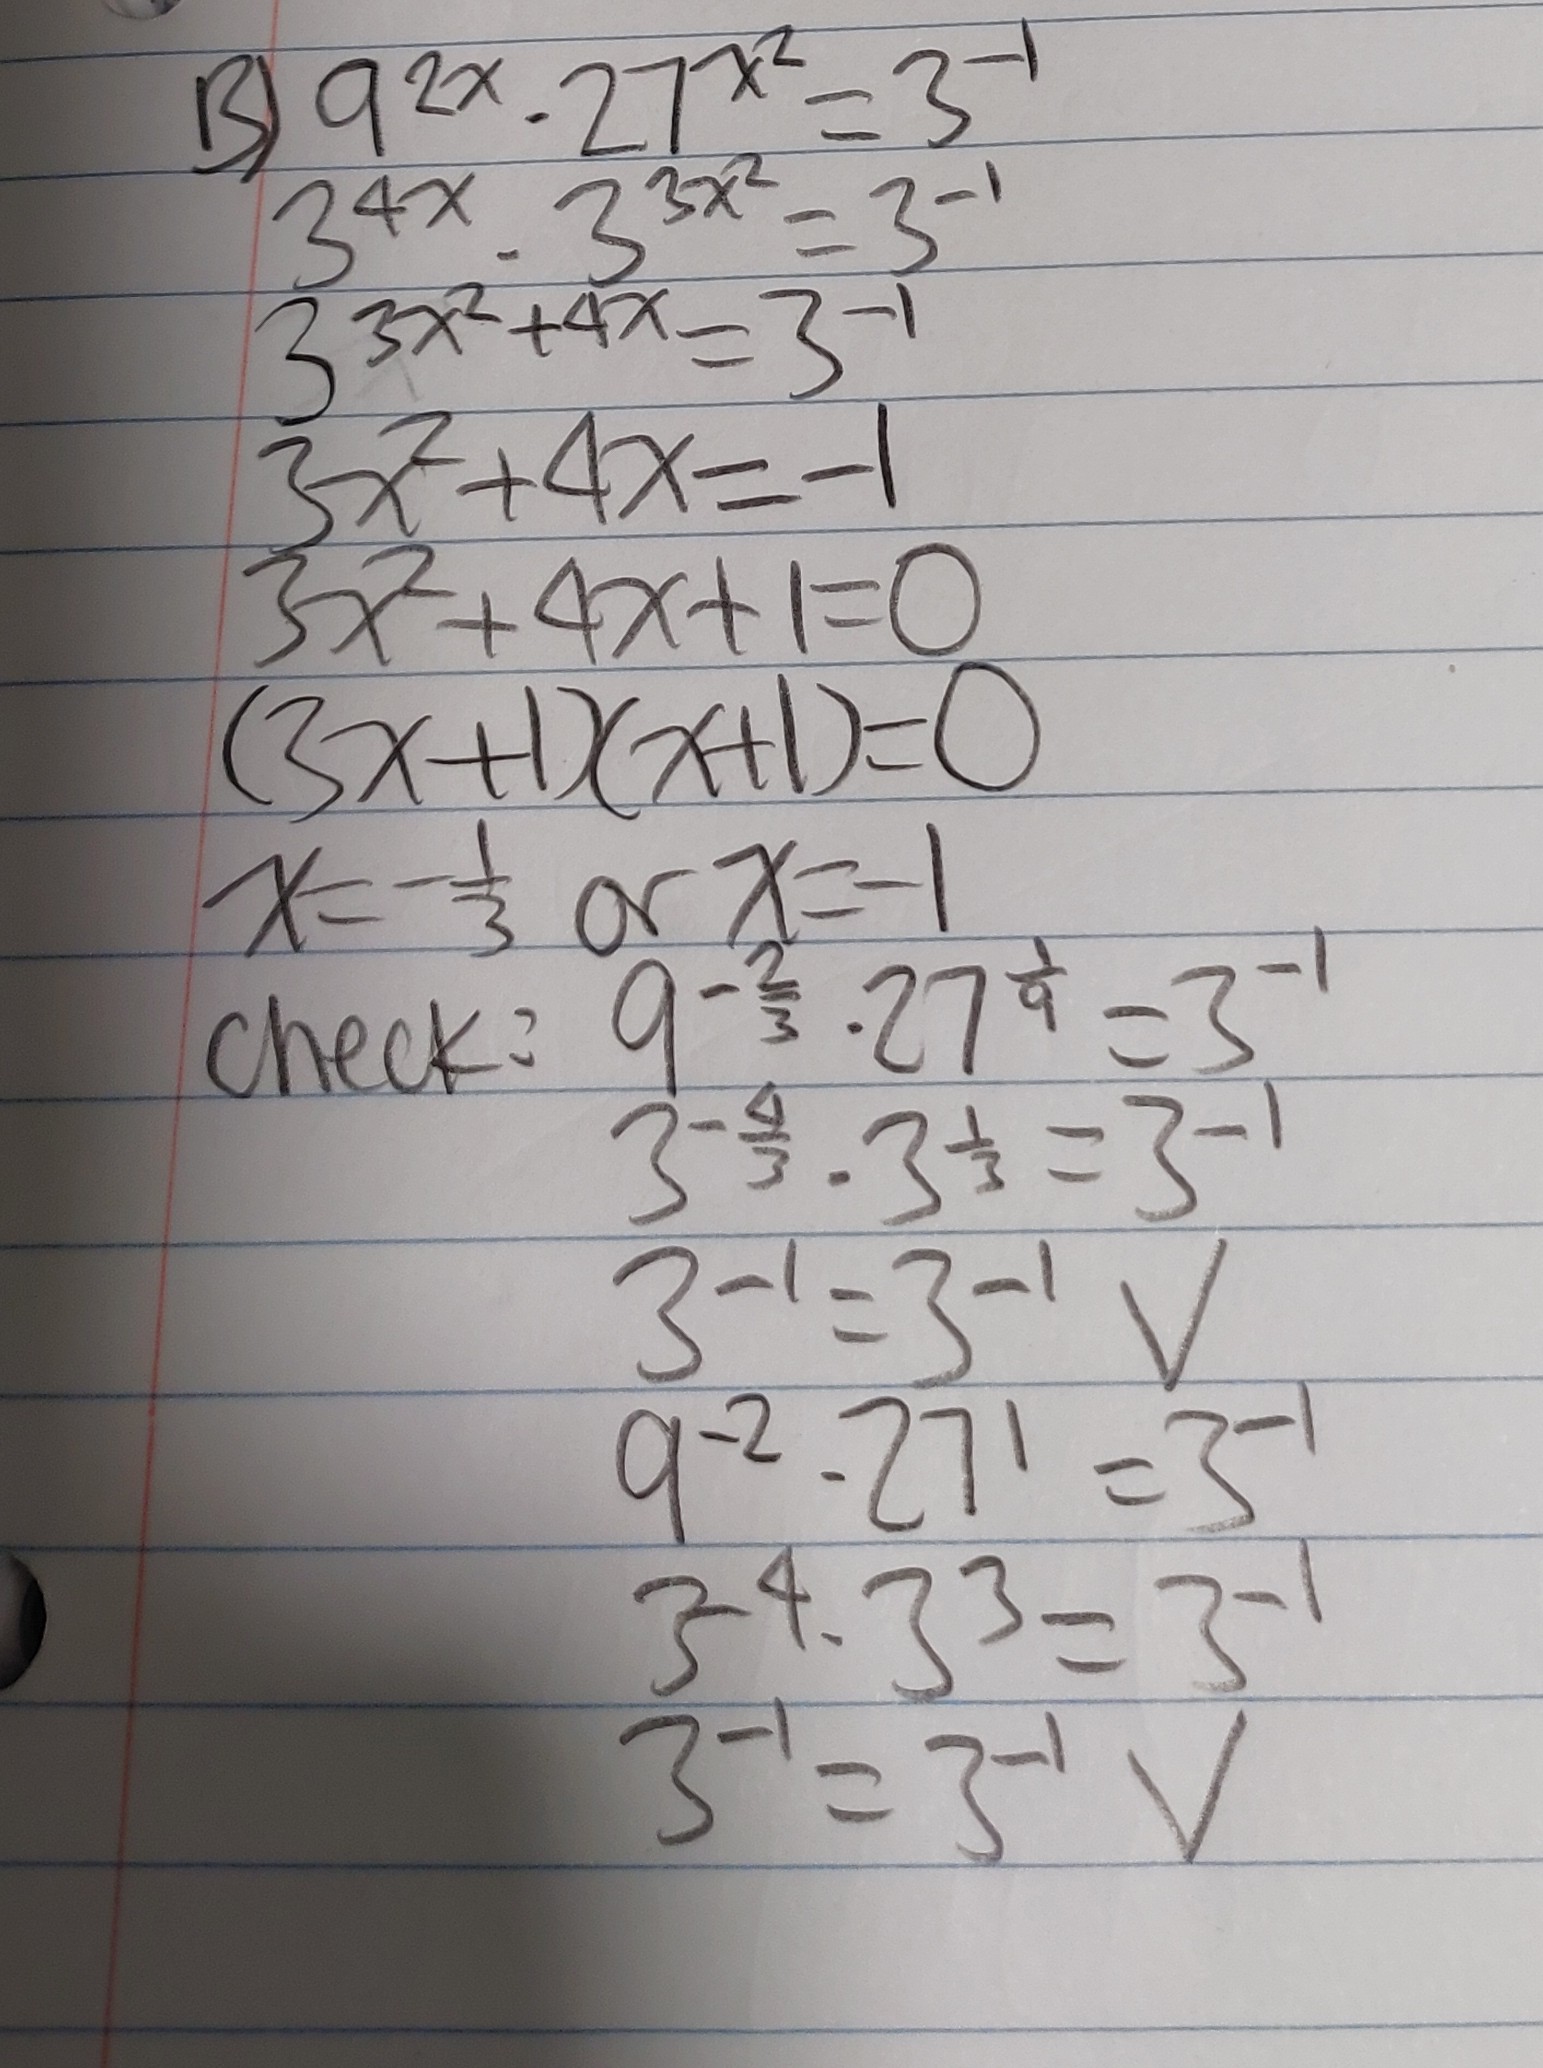 B) 9^{2x} · 27^{x^2} = 3^{-1}
3^{4x} · 3^{3x^2} = 3^{-1}
3^{3x^2+4x} = 3^{-1}
3x^2 + 4x = -1
3x^2 + 4x + 1 = 0
(3x+1)(x+1) = 0
x = -1/3 or x = -1
check: 9^{-2/3} · 27^{1/9} = 3^{-1}
3^{-4/3} · 3^{1/3} = 3^{-1}
3^{-1} = 3^{-1} √
9^{-2} · 27^1 = 3^{-1}
3^{-4} · 3^3 = 3^{-1}
3^{-1} = 3^{-1} √